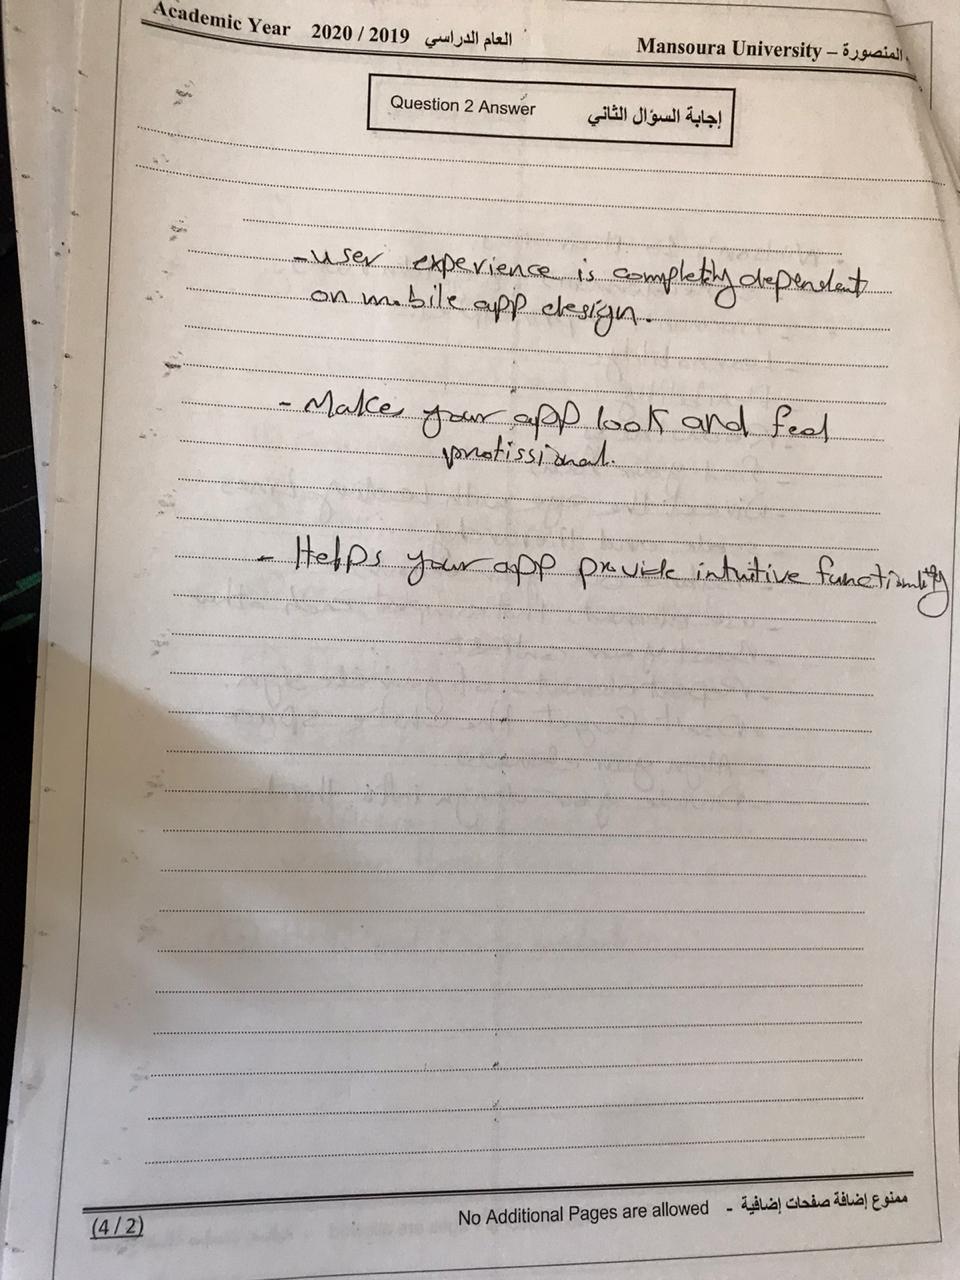 Academic Year 2020 / 2019 العام الدراسي Mansoura University – المنصورة
Question 2 Answer إجابة السؤال الثاني
- user experience is completly dependent
on mobile app design.
- Make your app look and feel
protissional.
- Helps your app provide intuitive functionality
(4 / 2) No Additional Pages are allowed - ممنوع إضافة صفحات إضافية